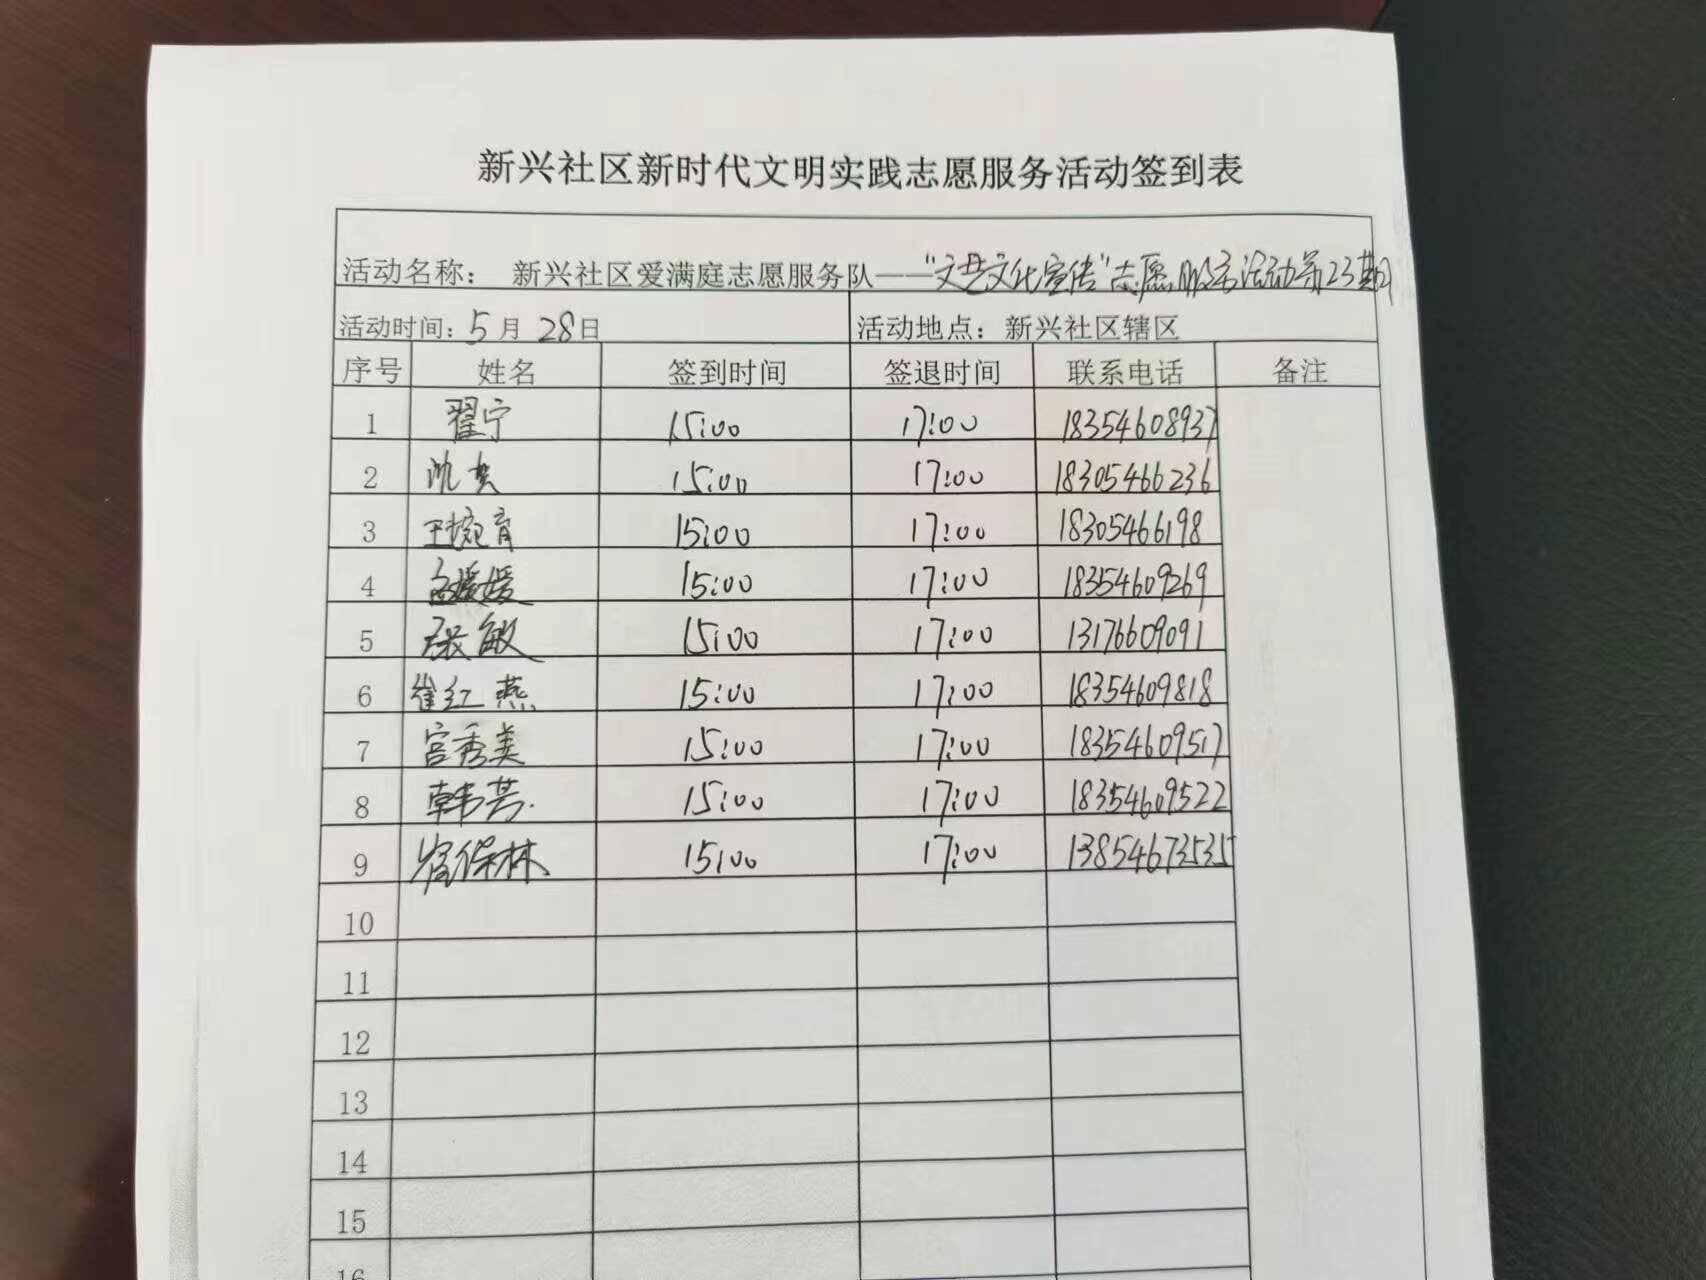 新兴社区新时代文明实践志愿服务活动签到表
活动名称： 新兴社区爱满庭志愿服务队——"文艺文化宣传"志愿服务活动第23期
活动时间：5月28日 活动地点：新兴社区辖区
序号 姓名 签到时间 签退时间 联系电话 备注
1 翟宁 15:00 17:00 18354608937
2 15:00 17:00 18305466236
3 15:00 17:00 18305466198
4 15:00 17:00 18354609269
5 张敏 15:00 17:00 13176609091
6 崔红燕 15:00 17:00 18354609818
7 宫秀美 15:00 17:00 18354609517
8 韩芸 15:00 17:00 18354609522
9 崔保林 15:00 17:00 13854673535
10
11
12
13
14
15
16